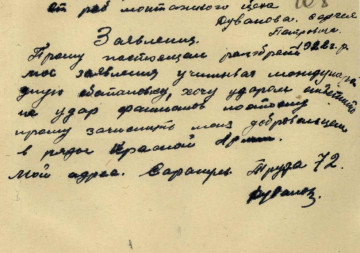 от раб монтажного цеха
Дуванова. Сергея
Петровича
Заявления.
Прошу настоящем разобрать
мое заявления учитывая
обстановку, хочу ударом
на удар фашизма поэтому
прошу зачислить меня добровольцем
в ряды Красной Армии.
Мой адрес. Сарапуль. Труда 72.
Дуванов.